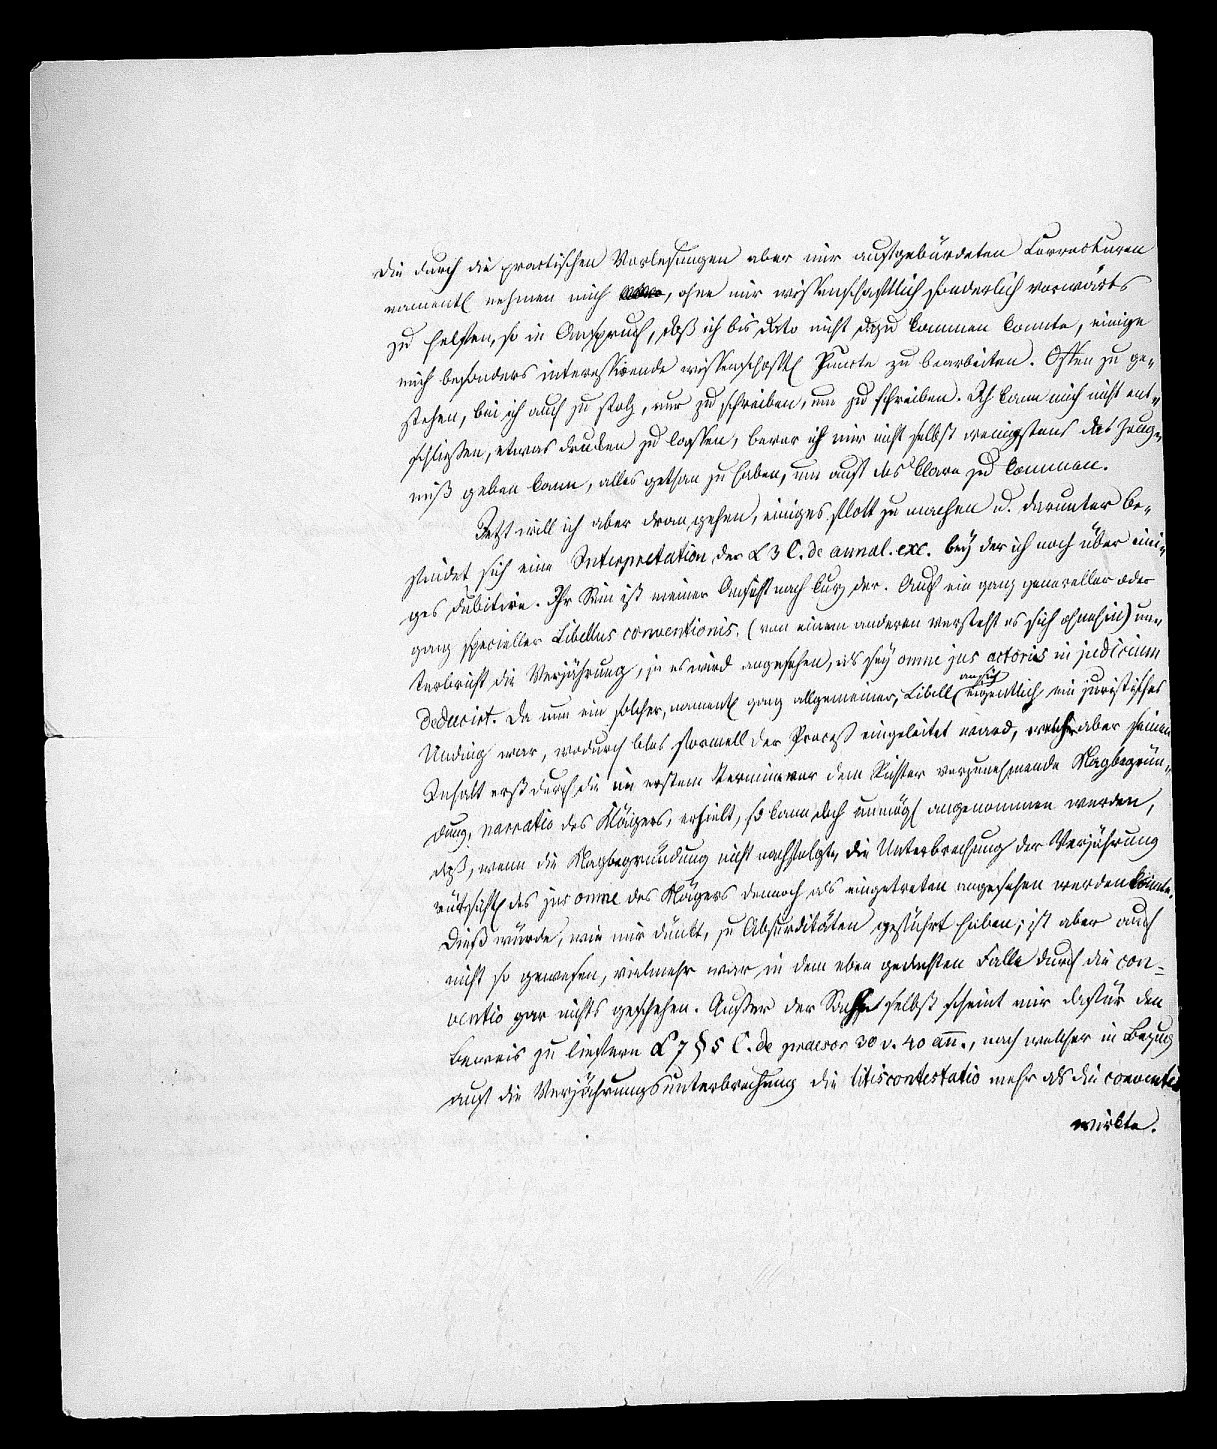 Die durch die practischen Vorlesungen aber mir aufgebürdeten Correcturen
namentl nehmen mich, ohne mir wissenschaftlich sonderlich vorwärts
zu helfen, so in Anspruch, daß ich bis dato nicht dazu kommen konnte, einige
mich besonders interessirende wissenschaftl Puncte zu bearbeiten. Offen zu ge-
stehen, bin ich auch zu stolz, nur zu schreiben, um zu schreiben. Ich kann mich nicht ent-
schließen, etwas drucken zu lassen, bevor ich mir nicht selbst wenigstens das Zeug-
niß geben kann, alles gethan zu haben, um auf das Klare zu kommen.
Jetzt will ich aber dran gehen, einiges flott zu machen u. darunter be-
findet sich eine Interpretation der L 3 C. de annal. exc. bey der ich noch über eini-
ges dubitire. Ihr Sinn ist meiner Ansicht nach kurz der. Auch ein ganz genereller oder
ganz specieller Libellus conventionis. (von einem anderen versteht es sich ohnehin) un-
terbricht die Verjährung, ja es wird angesehen, als sey omne jus actoris in judicium
deducirt. Da nun ein solcher, namentl ganz allgemeiner, Libell an sich eigentlich ein juristisches
Unding war, wodurch blos formell der Proceß eingeleitet ward, welcher aber seinen
Inhalt erst durch die im ersten Termine vor dem Richter vorzunehmende Klagbegrün-
dung, narratio des Klägers, erhielt, so kann doch unmögl angenommen werden,
daß, wenn die Klagbegründung nicht nachfolgte, die Unterbrechung der Verjährung
rücksichtl des jus omne des Klägers dennoch als eingetreten angesehen werden könnte.
Dieß würde, wie mir dünkt, zu Absurditäten geführt haben; ist aber auch
nicht so gewesen, vielmehr war in dem eben gedachten Falle durch die con-
ventio gar nichts geschehen. Außer der Sache selbst scheint mir dafür den
Beweis zu liefern L 7 § 5 C. de praescr 30 v. 40 an̄., nach welcher in Bezug
auf die Verjährungsunterbrechung die litiscontestatio mehr als die conventio
wirkte.